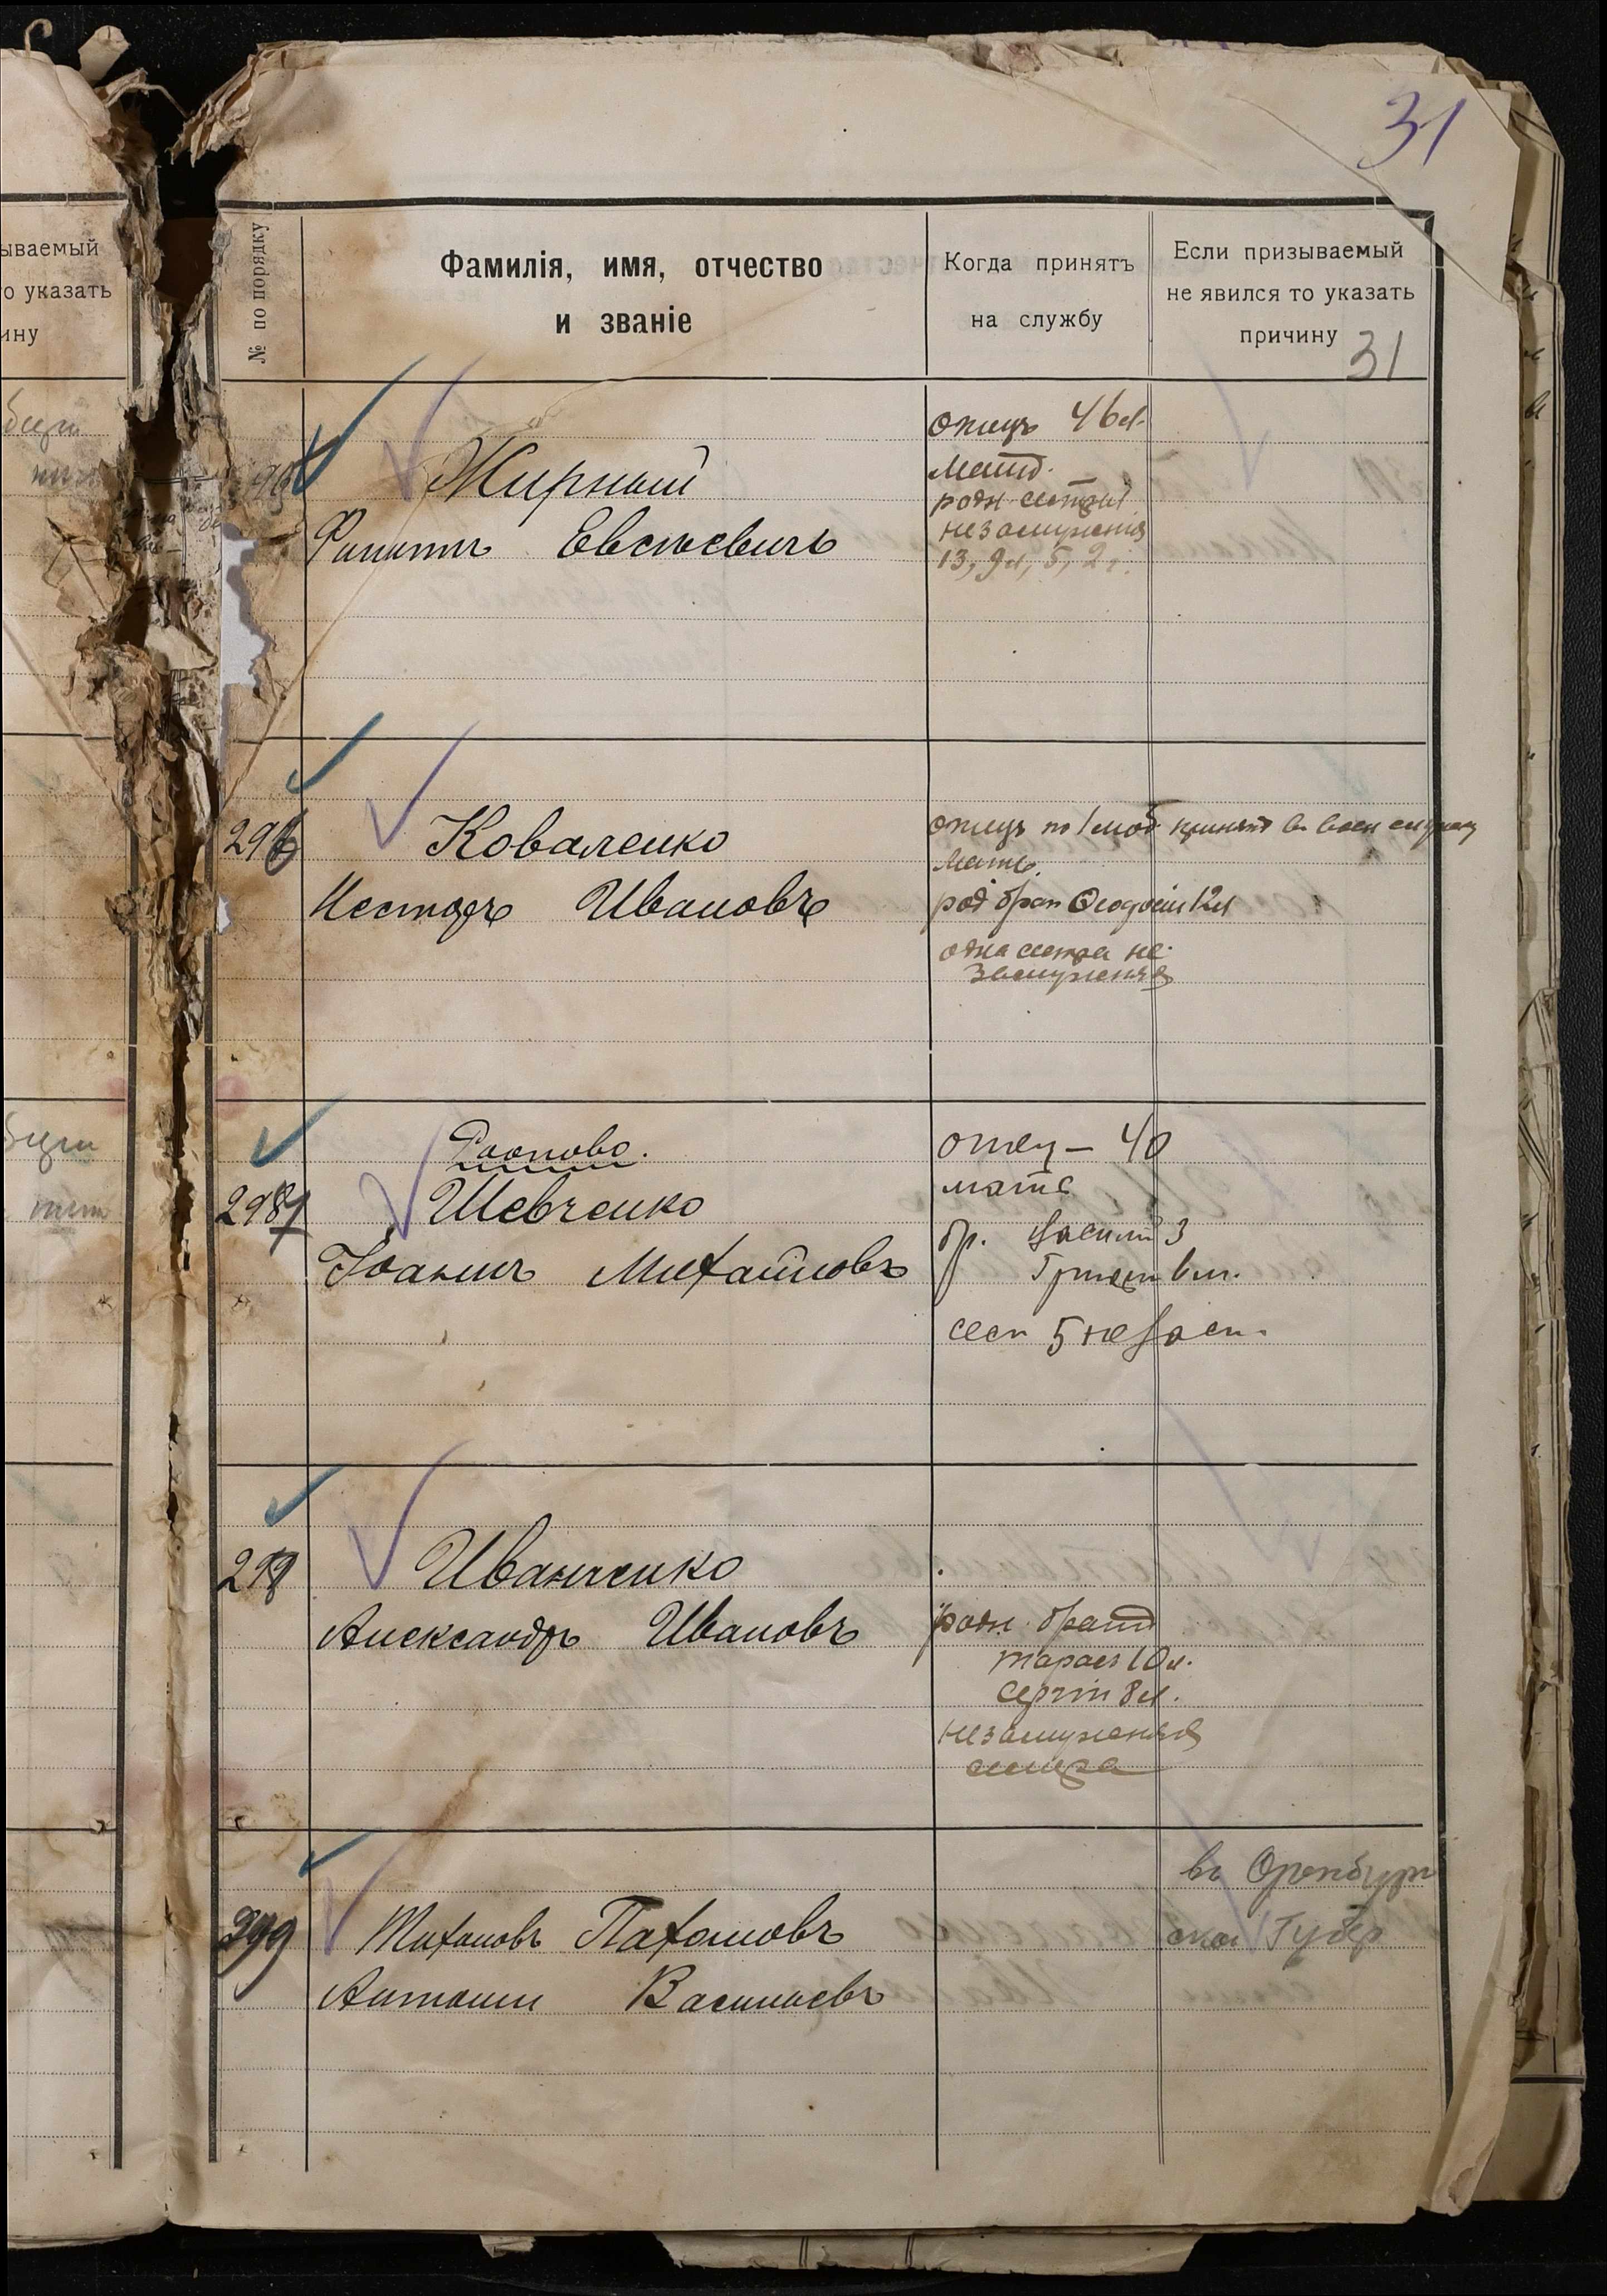 31
ываемый
о указать
ину
№ по порядку
Фамилія, имя, отчество
и званіе
Когда принятъ
на службу
Если призываемый
не явился то указать
причину
31
Жирный
Филиппъ Евсѣевичъ
отецъ 46 л.
мать.
родн сестры
незамужнія
13, 9 л, 5, 2 г.
296
Коваленко
Несторъ Ивановъ
отецъ по моб принятъ в воен службу
мать.
род брат Ѳеодосій 12 л
одна сестра не
замужняя
Шевченко
Іоаннъ Михайловъ
отец – 40
мать
бр. Василий 3
6 м.
сест 5 не
298
Иванченко
Александръ Ивановъ
родн. братъ
Тарас 10 л.
Сергій 8 л.
незамужняя
сестра
299
Пахомовъ
Антонъ Васильевъ
въ Оренбург
ской Губер